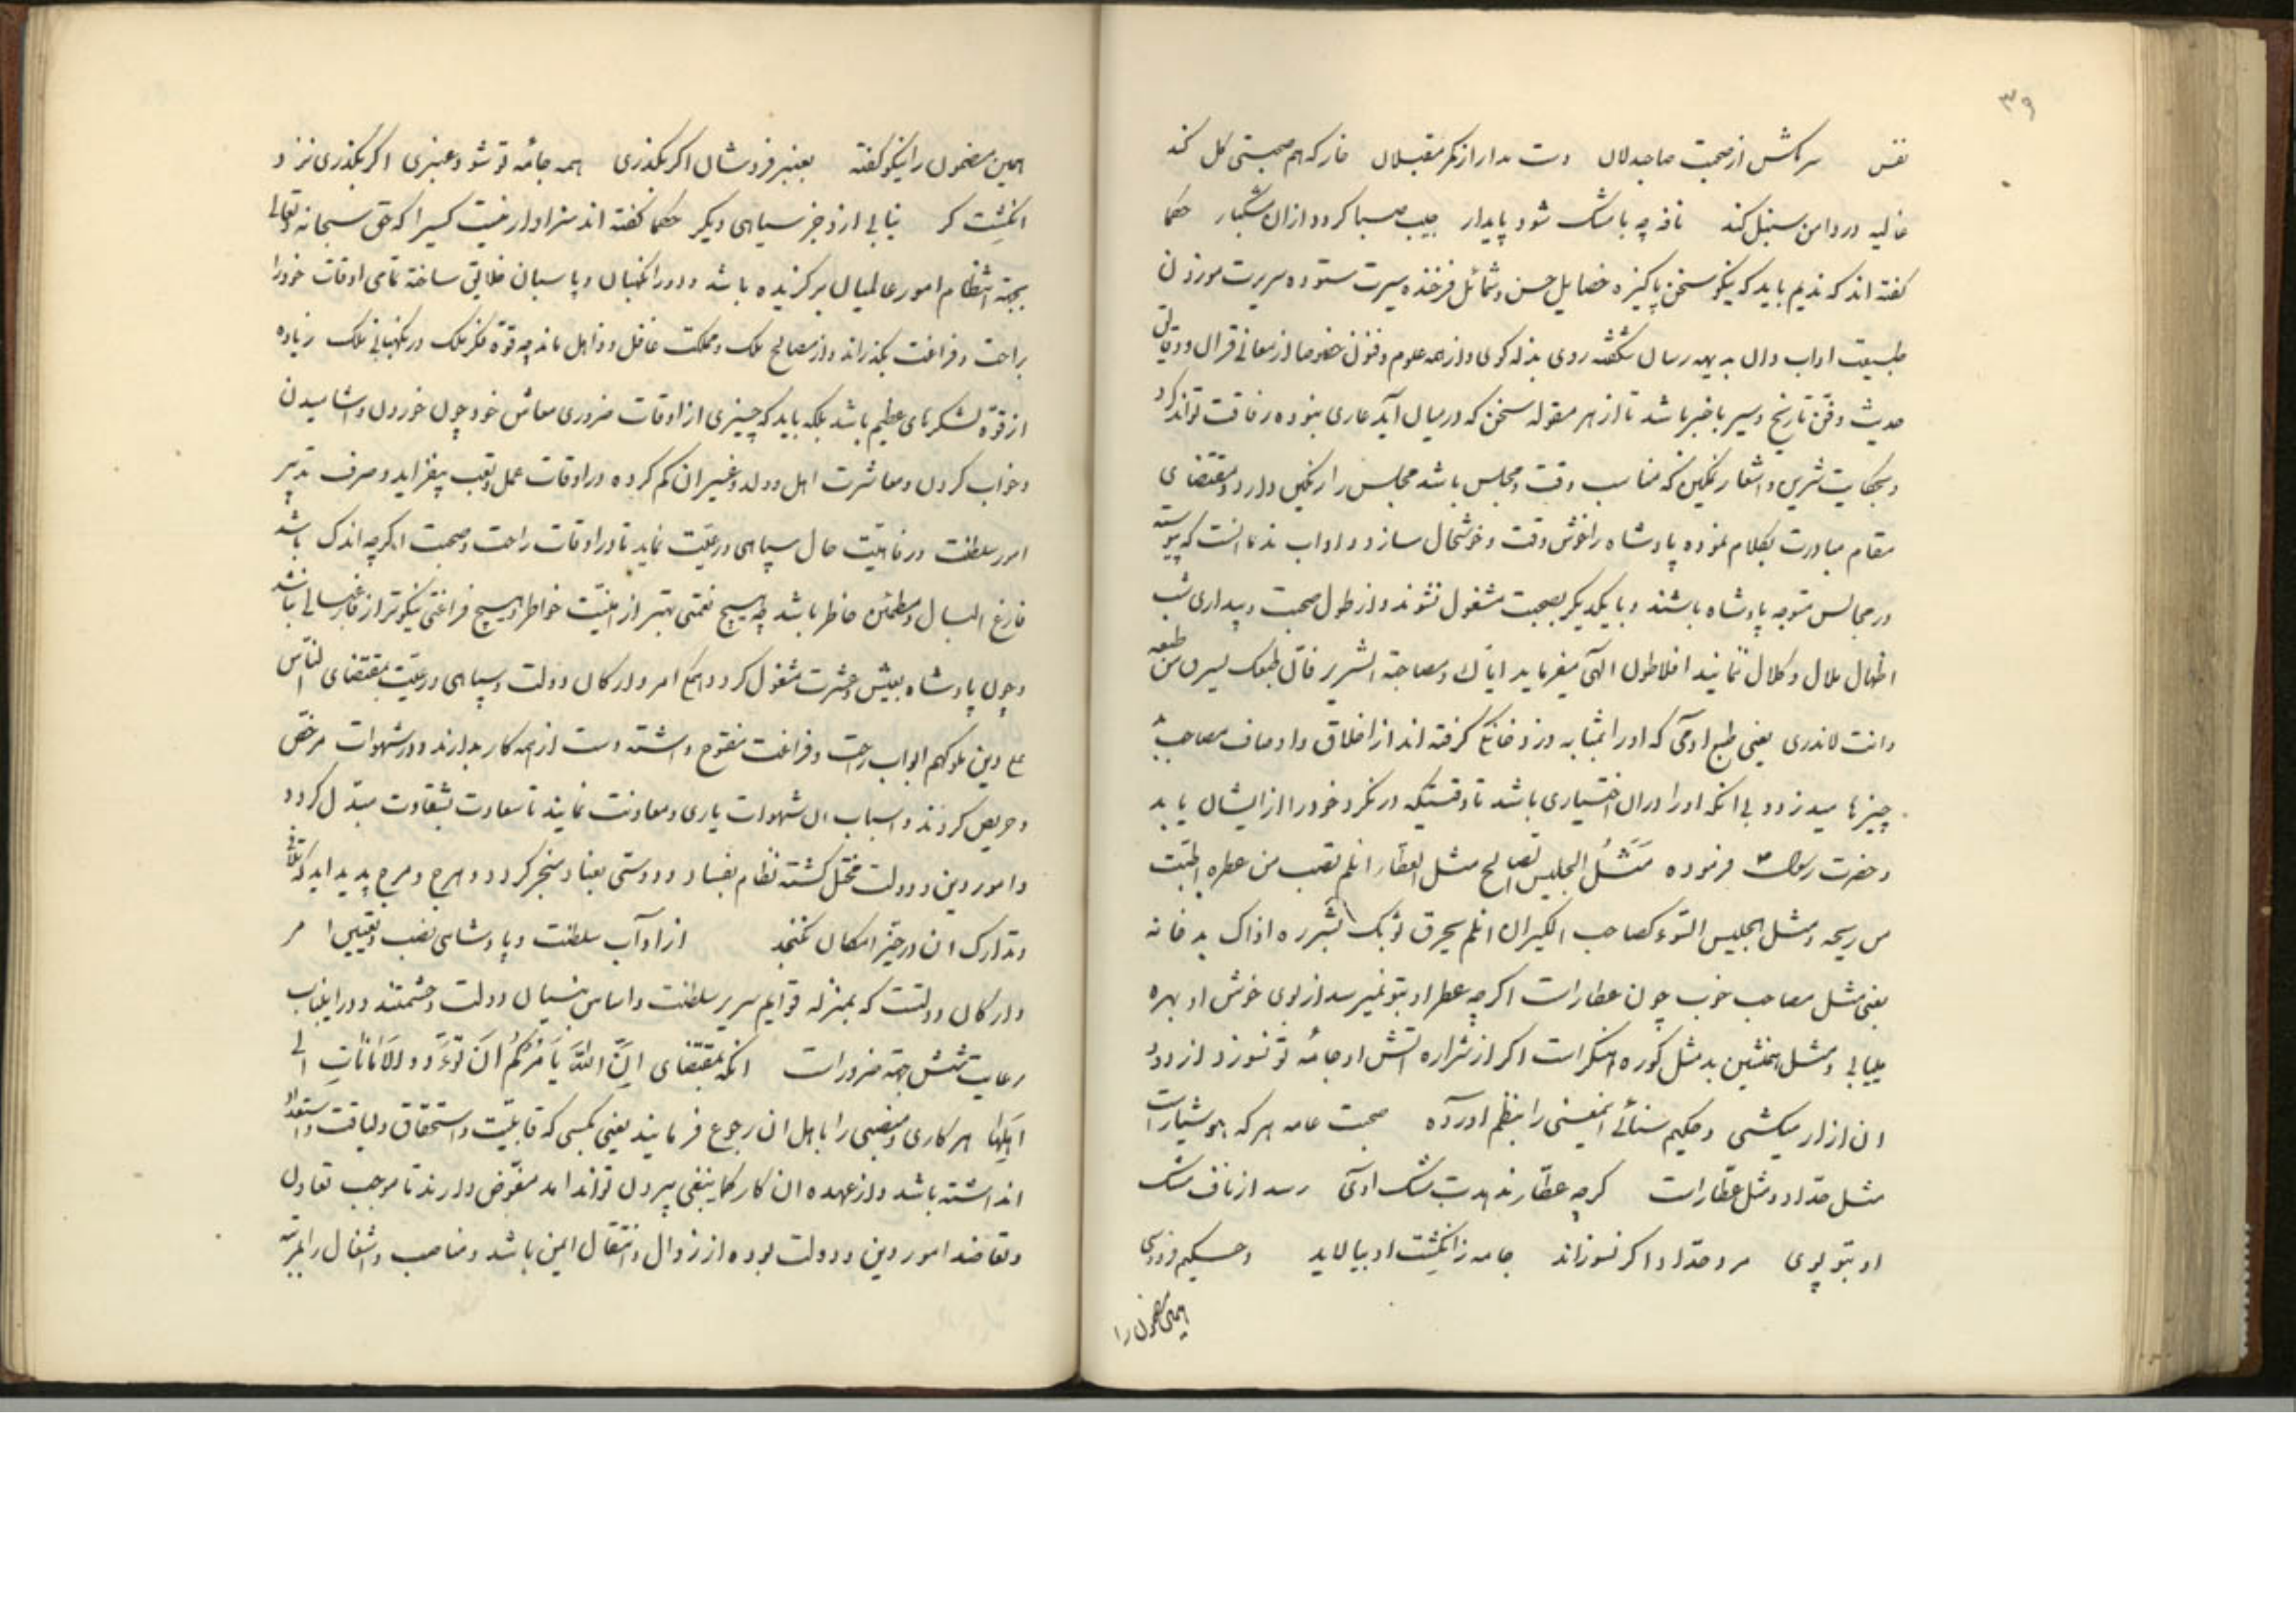 ۳۹
نفس سرمکش از صحبت صاحبدلان دست مدار از کمر مقبلان خار که هم صحبتی کل کند
غالیه در دامن سنبل کند نافه چه با مشک شود پایدار جیب صبا کردد ازان مشکبار حکما
کفته اند که ندیم باید که نیکو سخن پاکیزه خصایل حسن شمائل فرخنده سیرت ستوده سریرت موزون
طبیعت اداب دان بدیهه رسان شکفته روی بذله کوی و از همه علوم و فنون خصوصا از معانی قران و دقایق
حدیث و فن تاریخ و سیر با خبر باشد تا از هر مقوله سخن که در میان آید عاری نبوده رفاقت تواند کرد
و بحکایت شیرین و اشعار نمکین که مناسب وقت و مجلس باشد مجلس را رنکین دارد و بمقتضای
مقام مبادرت بکلام نموده پادشاه را خوش وقت و خوشحال سازد و اداب ندما انست که پیوسته
در مجالس متوجه پادشاه باشند و با یکدیکر بصحبت مشغول نشوند و از طول صحبت و بیداری شب
اظهار ملال و کلال ننمایند افلاطون الهی میفرماید ایاک و مصاحبة الشریر فان طبعک یسرق من طبعه
وانت لاتدری یعنی طبع ادمی که اورا بمثابه دزد خانکی کرفته اند از اخلاق و اوصاف مصاحب بد
چیزها میدزدد بی انکه اورا دران اختیاری باشد تا وقتیکه در نکرد خود را از ایشان یابد
و حضرت رسول فرموده مَثَلُ الجلیس الصالح مثل العطار ان لم تصب من عطره اصبت
من ریحه و مثل الجلیس السوء کصاحب الکیر ان لم یحرق ثوبک بشرره اذاک بدخانه
یعنی مثل مصاحب خوب چون عطارست اکر چه عطر او بتو نمیرسد از بوی خوش او بهره
مییابی و مثل همنشین بد مثل کوره اهنکرست اکر از شراره اتش او جامه تو نسوزد از دود
ان ازار میکشی و حکیم سنائی اینمعنی را بنظم اورده صحبت عامه هر که هوشیارست
مثل حداد و مثل عطارست کرچه عطار ندهدت مشک اوی رسد از ناف مشک
او بتو بوی مرد حداد اکر نسوزاند جامه ز انکشت او بیالاید و حکیم فردوسی
همین مضمون را
همین مضمون را نیکو کفته بعنبر فروشان اکر بکذری همه جامه تو شود عنبری اکر بکذری نزد
انکشت کر نیابی ازو جز سیاهی دیکر حکما کفته اند سزاوار نیست کسیرا که حق سبحانه وتعالی
بجهة انتظام امور عالمیان برکزیده باشد و اورا نکهبان و پاسبان خلایق ساخته تمامی اوقات خودرا
براحت و فراغت بکذراند و از مصالح ملک و مملکت غافل و ذاهل ماند چه قوة فکر ملک در نکهبانی ملک زیاده
از قوة لشکرهای عظیم باشد بلکه باید که چیزی از اوقات ضروری معاش خود چون خوردن و اشامیدن
و خواب کردن و معاشرت اهل و ولد و غیر ان کم کرده در اوقات عمل و تعب بیفزاید و صرف تدبیر
امور سلطنت و رفاهیت حال سپاهی و رعیت نماید تا در اوقات راحت و صحبت اکرچه اندک باشد
فارغ البال و مطمئن خاطر باشد چه هیچ نعمتی بهتر از امنیت خواطر و هیچ فراغتی نیکوتر از فارغبالی نباشد
و چون پادشاه بعیش و عشرت مشغول کردد امرا و ارکان دولت و سپاهی و رعیت بمقتضای الناس
علی دین ملوکهم ابواب راحت و فراغت مفتوح داشته دست از همه کار بدارند و در شهوات مرخص
و حریص کردند و اسباب ان شهوات یاری و معاونت نمایند تا سعادت بشقاوت مبدل کردد
و امور دین و دولت مختل کشته نظام بفساد و دوستی بعناد منجر کردد و هرج و مرج پدید اید که تلافی
و تدارک ان در حیز امکان نکنجد از اداب سلطنت و پادشاهی نصب و تعیین امر
و ارکان دولتست که بمنزله قوایم سریر سلطنت و اساس بنیان دولت و حشمتند و در اینباب
رعایت شش جهة ضرورست انکه بمقتضای اِنَّ اللهَ یَامُرُکُم اَن تُوَدُّو الاَمَانَاتِ الی
اَهلِهَا هر کاری و منصبی را باهل ان رجوع فرمایند یعنی بکسی که قابلیت و استحقاق و لیاقت و استعداد
ان داشته باشد و از عهده ان کار کماینبغی بیرون تواند امد مفوض دارند تا موجب تعاون
و تعاضد امور دین و دولت بوده از زوال و انتقال ایمن باشد و مناصب و اشغال را بمرتبه